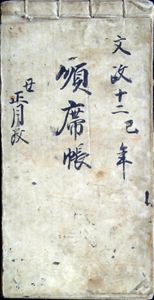 文政十二己年
順席帳
丑
正月改